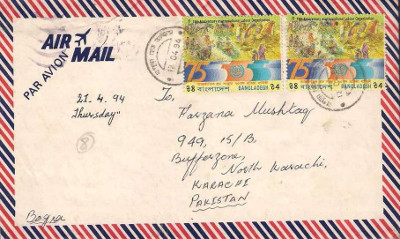 AIR MAIL
PAR AVION
12 04 94
75
75
৳4 বাংলাদেশ BANGLADESH ৳4
৳4 বাংলাদেশ BANGLADESH ৳4
21. 4. 94
Thursday
8
To,
Farzana Mushtaq
949, 15/B.
Bufferzone,
North Karachi,
KARACHI
PAKISTAN
Bogra